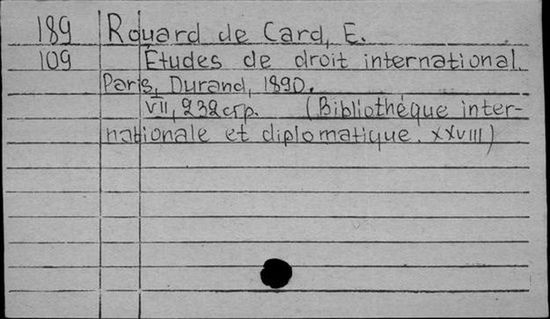 189 Rouard de Card, E.
109 Études de droit international.
Paris, Durand, 1890.
VII, 232 стр. (Bibliothéque inter-
nationale et diplomatique. XXVIII)